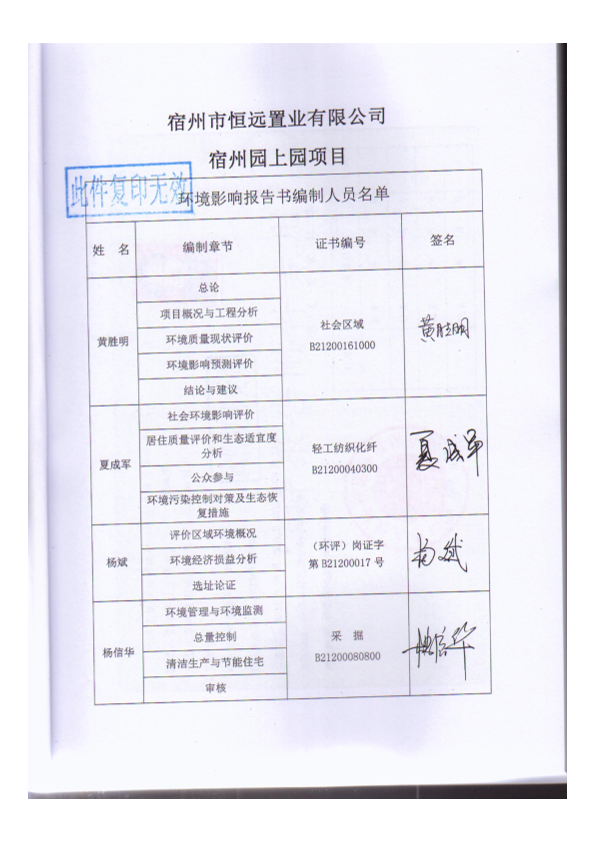 宿州市恒远置业有限公司
宿州园上园项目
此件复印无效
环境影响报告书编制人员名单
姓 名 编制章节 证书编号 签名
黄胜明
总论
项目概况与工程分析
环境质量现状评价
环境影响预测评价
结论与建议
社会区域
B21200161000
黄胜明
夏成军
社会环境影响评价
居住质量评价和生态适宜度
分析
公众参与
环境污染控制对策及生态恢
复措施
轻工纺织化纤
B21200040300
夏成军
杨斌
评价区域环境概况
环境经济损益分析
选址论证
（环评）岗证字
第 B21200017 号
杨斌
杨信华
环境管理与环境监测
总量控制
清洁生产与节能住宅
审核
采 掘
B21200080800
杨信华